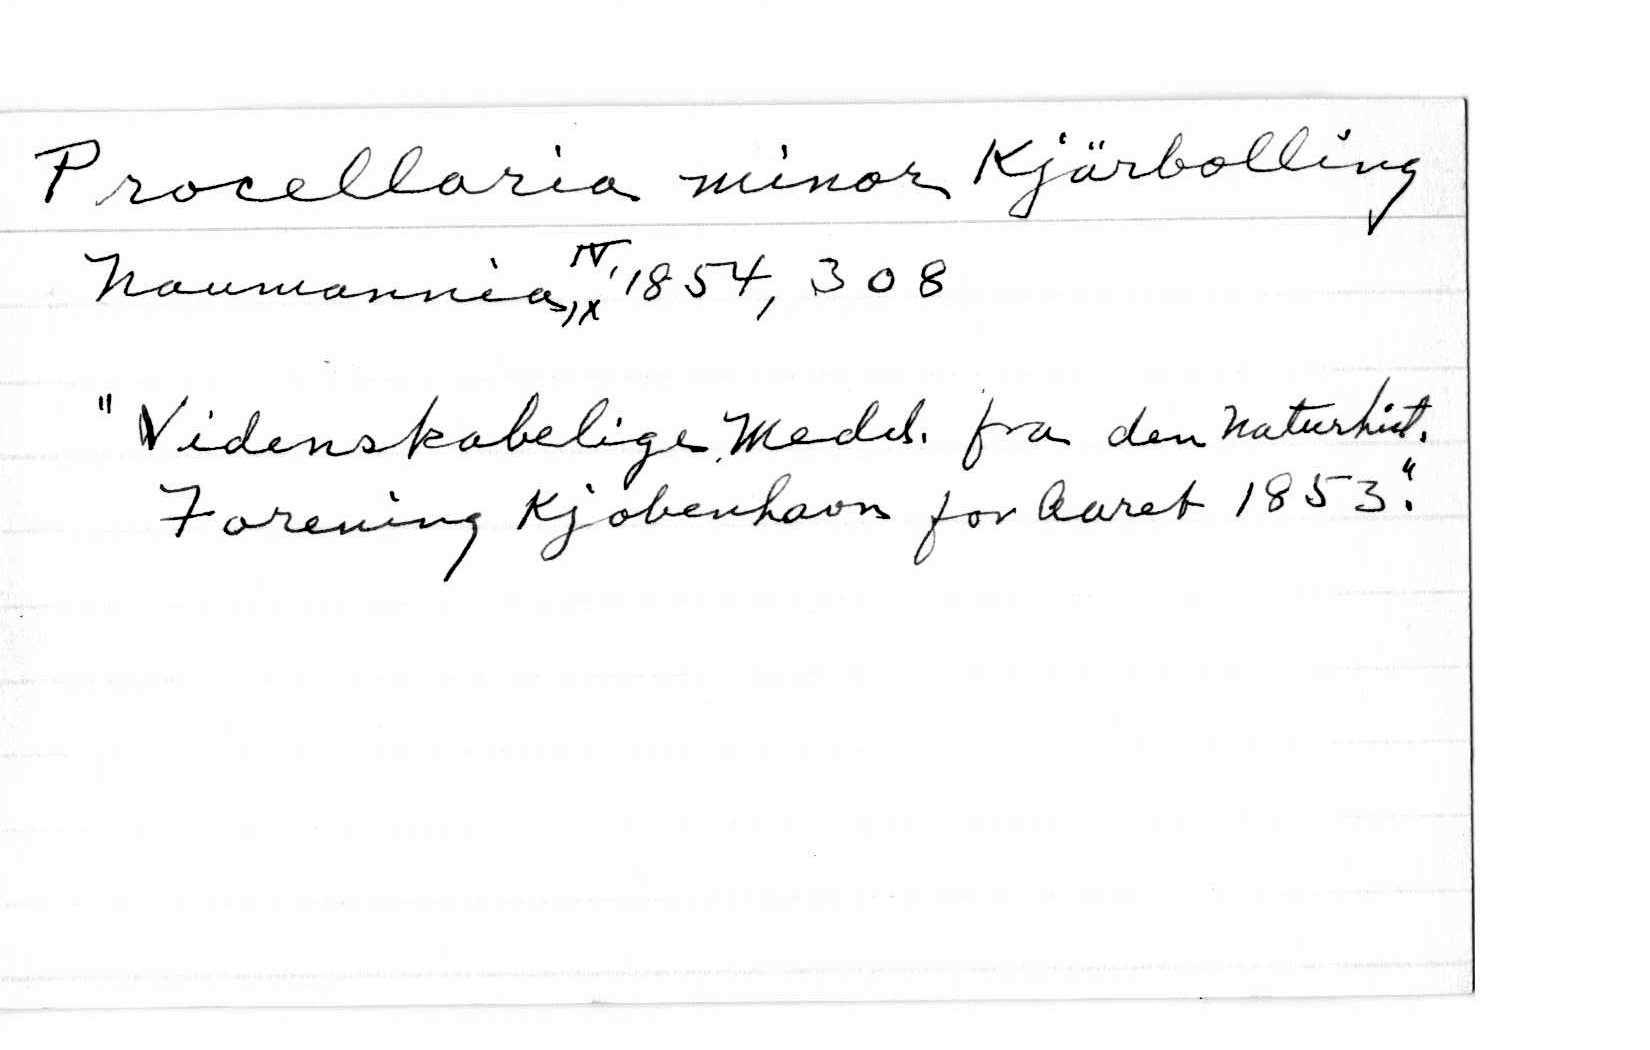 Procellaria minor Kjärbolling
Naumannia, IV, 1854, 308
"Videnskabelige Medd. fra den Naturhist.
Forening Kjobenhavn for Aaret 1853."